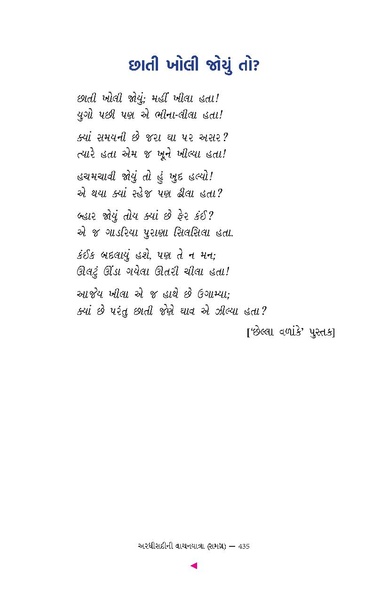 છાતી ખોલી જોયું તો?
છાતી ખોલી જોયું; મહીં ખીલા હતા!
યુગો પછી પણ એ ભીના-લીલા હતા!
ક્યાં સમયની છે જરા ઘા પર અસર?
ત્યારે હતા એમ જ ખૂને ખીલ્યા હતા!
હચમચાવી જોયું તો હું ખુદ હલ્યો!
એ થયા ક્યાં સ્હેજ પણ ઢીલા હતા?
બ્હાર જોયું તોય ક્યાં છે ફેર કંઈ?
એ જ ગાડરિયા પુરાણા સિલસિલા હતા.
કંઈક બદલાયું હશે, પણ તે ન મન;
ઊલટું ઊંડા ગયેલા ઊતરી ચીલા હતા!
આજેય ખીલા એ જ હાથે છે ઉગામ્યા;
ક્યાં છે પરંતુ છાતી જેણે ઘાવ એ ઝીલ્યા હતા?
[‘છેલ્લા વળાંકે’ પુસ્તક]
અરધીસદીની વાચનયાત્રા (સમગ્ર) — 435